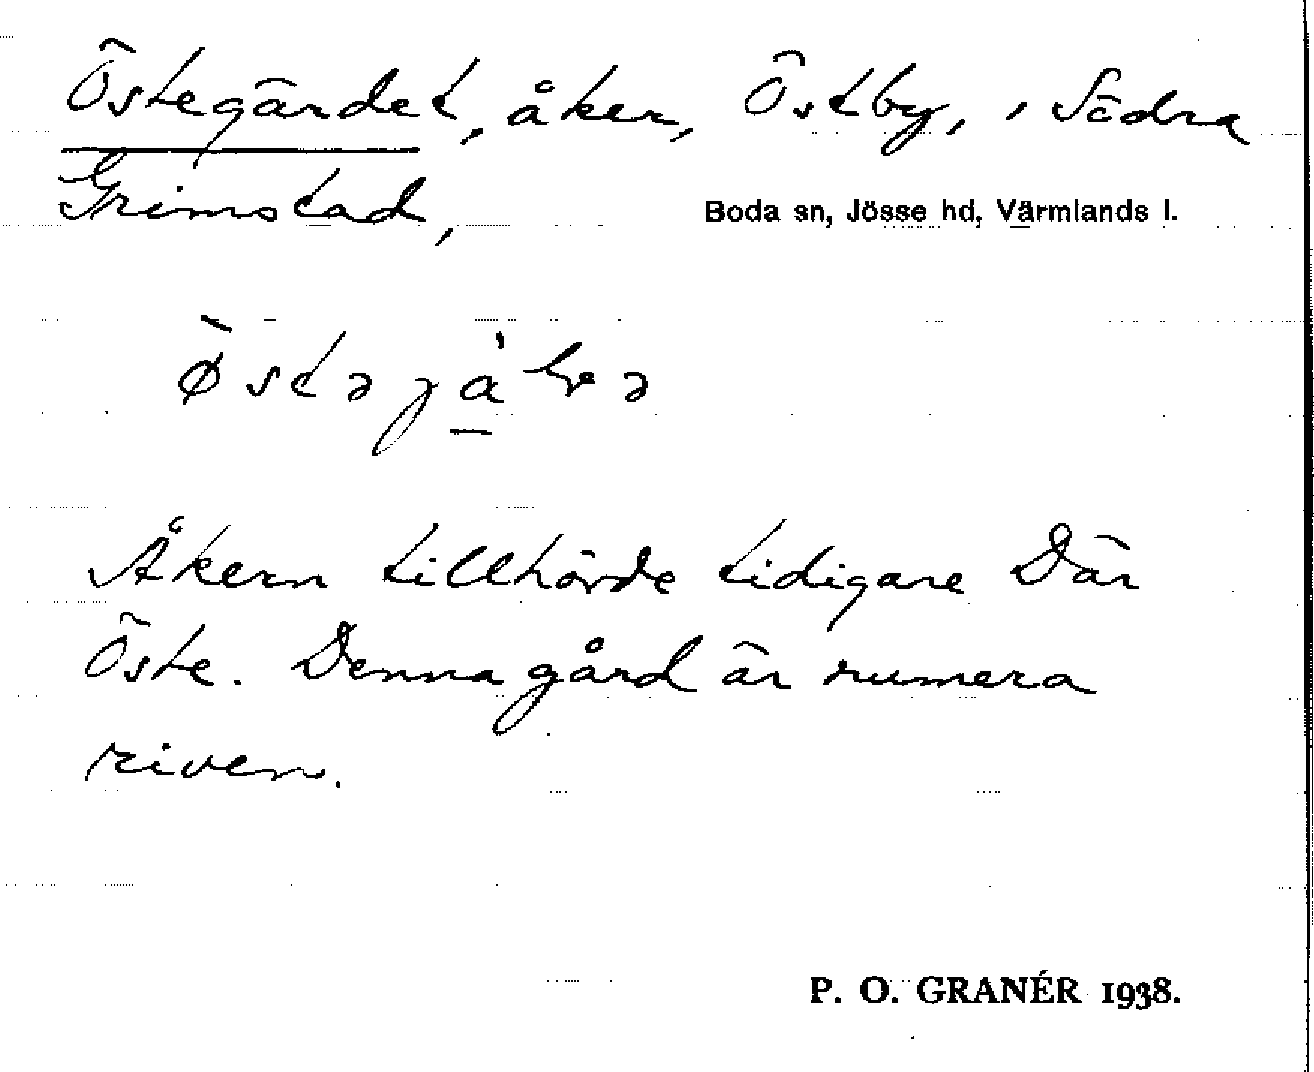 Östegärdet, åker, Östby, i Södra
Grimstad,
Boda sn, Jösse hd, Värmlands l.
Åkern tillhörde tidigare Där
Öste. Denna gård är numera
riven.
P. O. GRANÉR 1938.